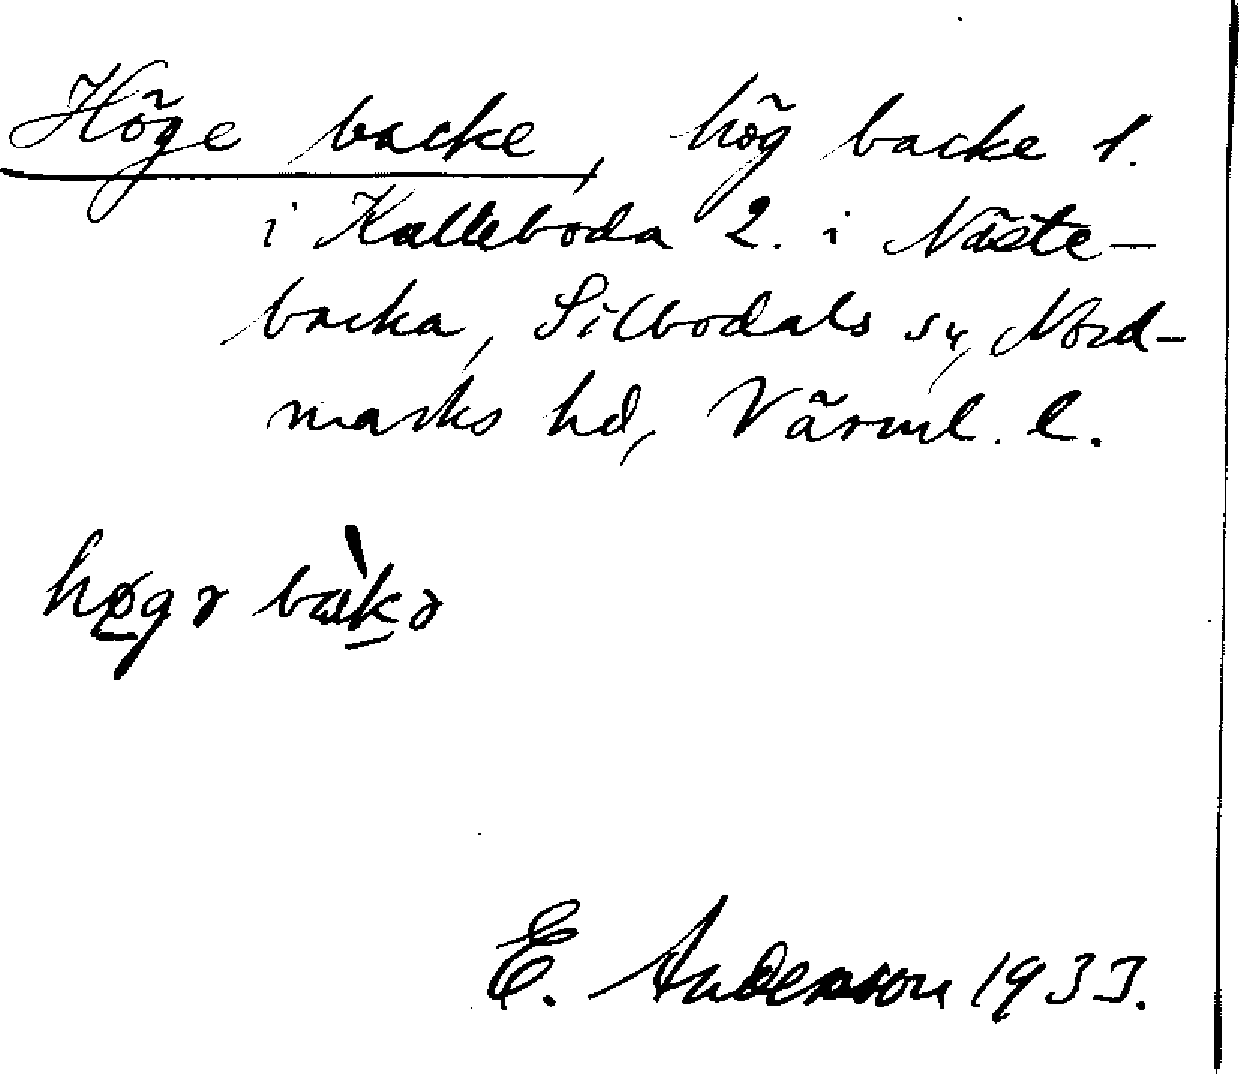 Höge backe, hög backe 1.
i Kalleboda 2. i Näste-
backa, Silbodals sn, Nord-
marks hd, Värml. l.
høgə bakə
E. Anderson 1933.